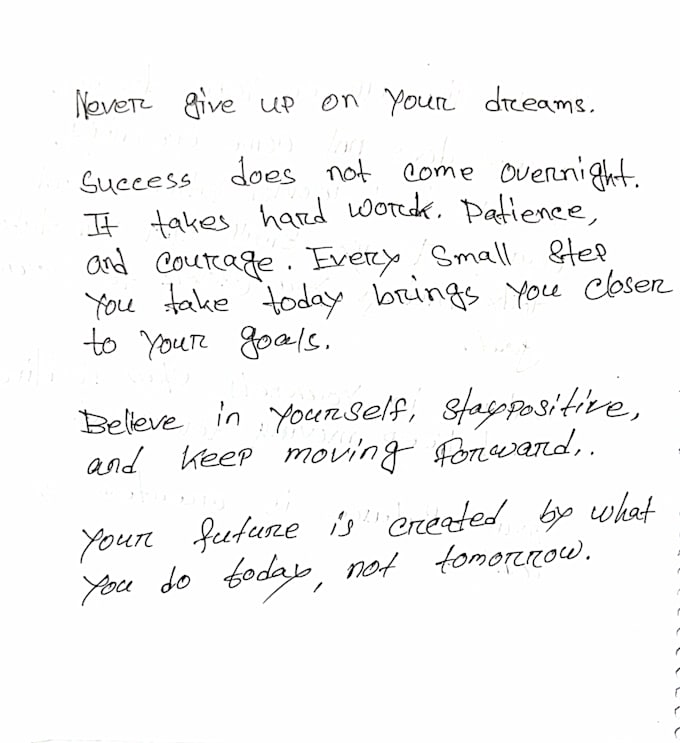 Never give up on your dreams.
Success does not come overnight.
It takes hard work. Patience,
and courage. Every small step
you take today brings you closer
to your goals.
Believe in yourself, stay positive,
and keep moving forward..
Your future is created by what
you do today, not tomorrow.